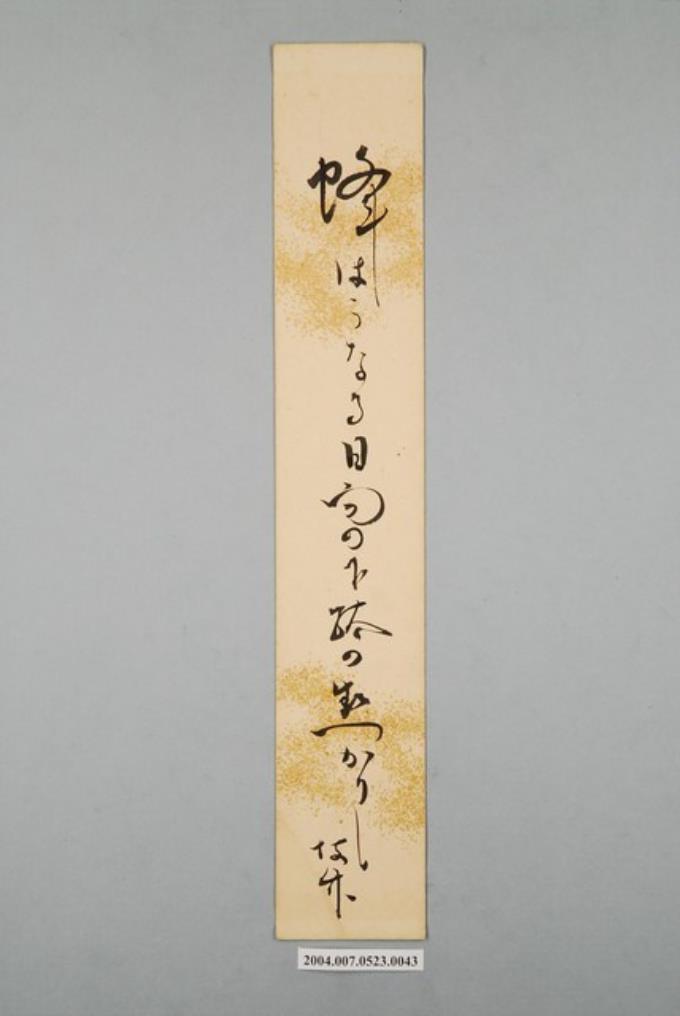 蜂はうなる日向の下駄の熱かりし
2004.007.0523.0043